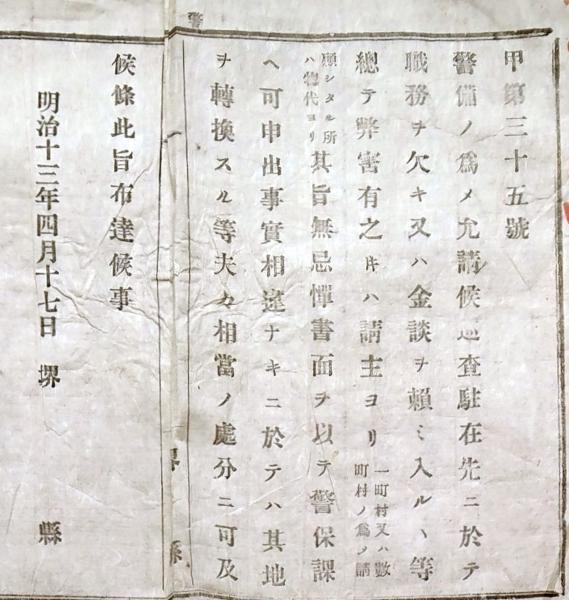 甲第三十五號
警備ノ為メ允請候巡査駐在先ニ於テ
職務ヲ欠キ又ハ金談ヲ賴ミ入ルヽ等
總テ弊害有之㪽ハ請主ヨリ一町村又ハ數町村ノ為メ請
願シタル所ハ惣代ヨリ其旨無忌憚書面ヲ以テ警保課
ヘ可申出事實相違ナキニ於テハ其地
ヲ轉換スル等夫々相當ノ處分ニ可及
候條此旨布達候事
明治十三年四月十七日 堺縣